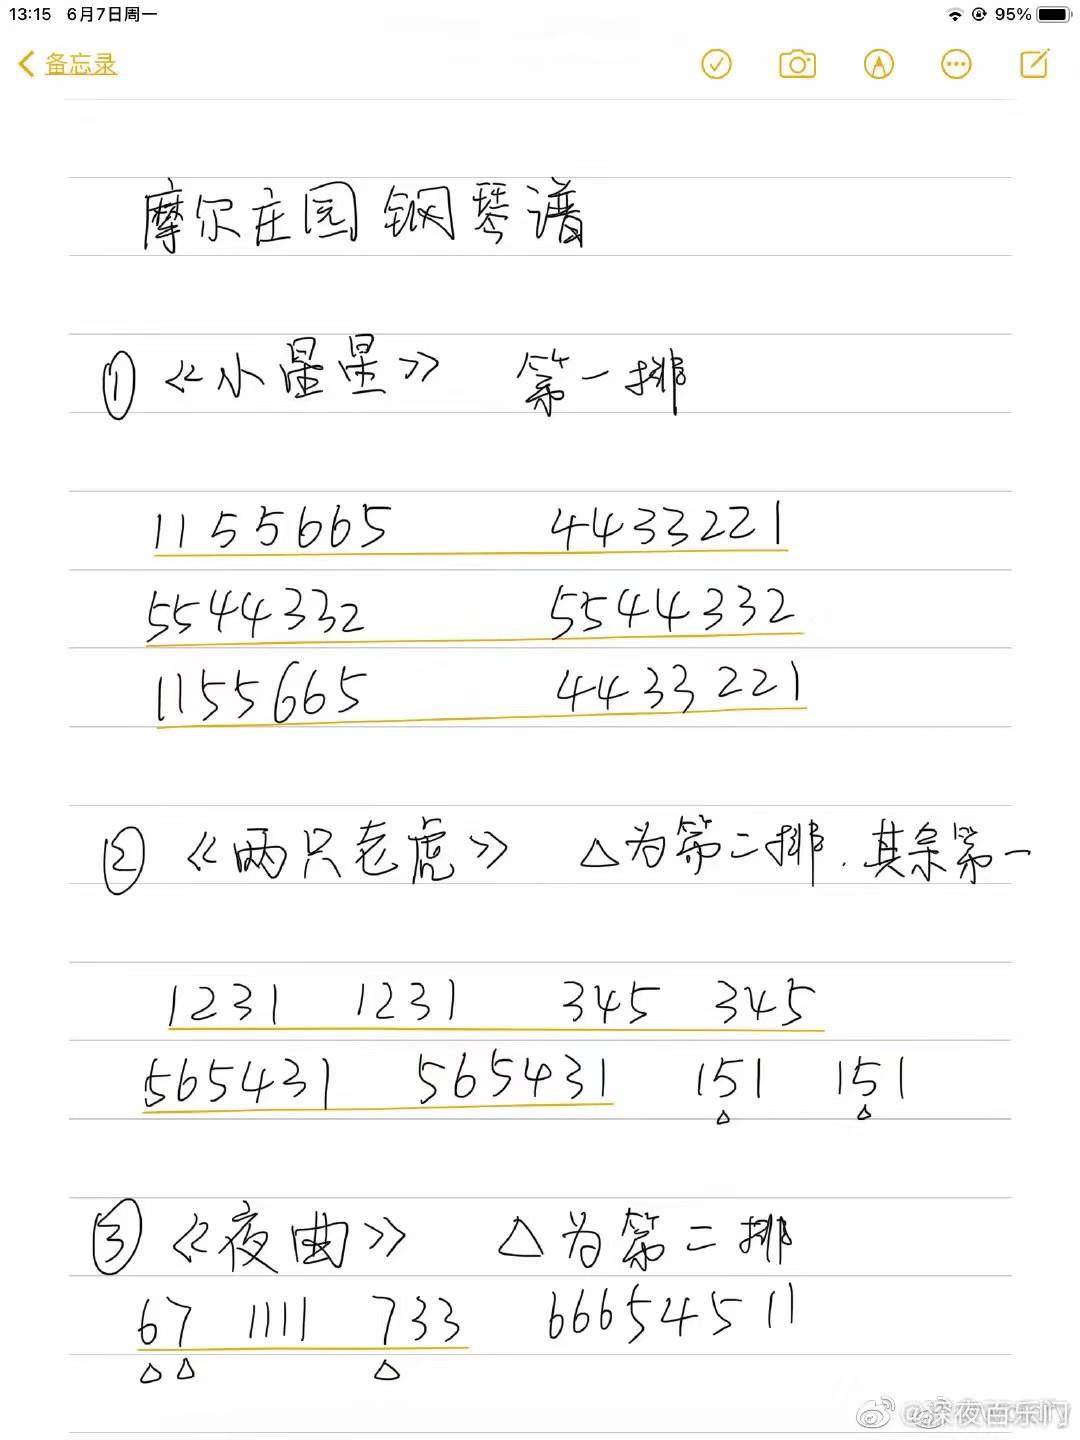 13:15 6月7日周一 95%
备忘录
摩尔庄园钢琴谱
① 《小星星》 第一排
1155665 4433221
5544332 5544332
1155665 4433221
② 《两只老虎》 △为第二排.其余第一
1231 1231 345 345
565431 565431 151 151
△ △
③ 《夜曲》 △为第二排
67 1111 733 666545 11
△ △ △
@深夜百乐门